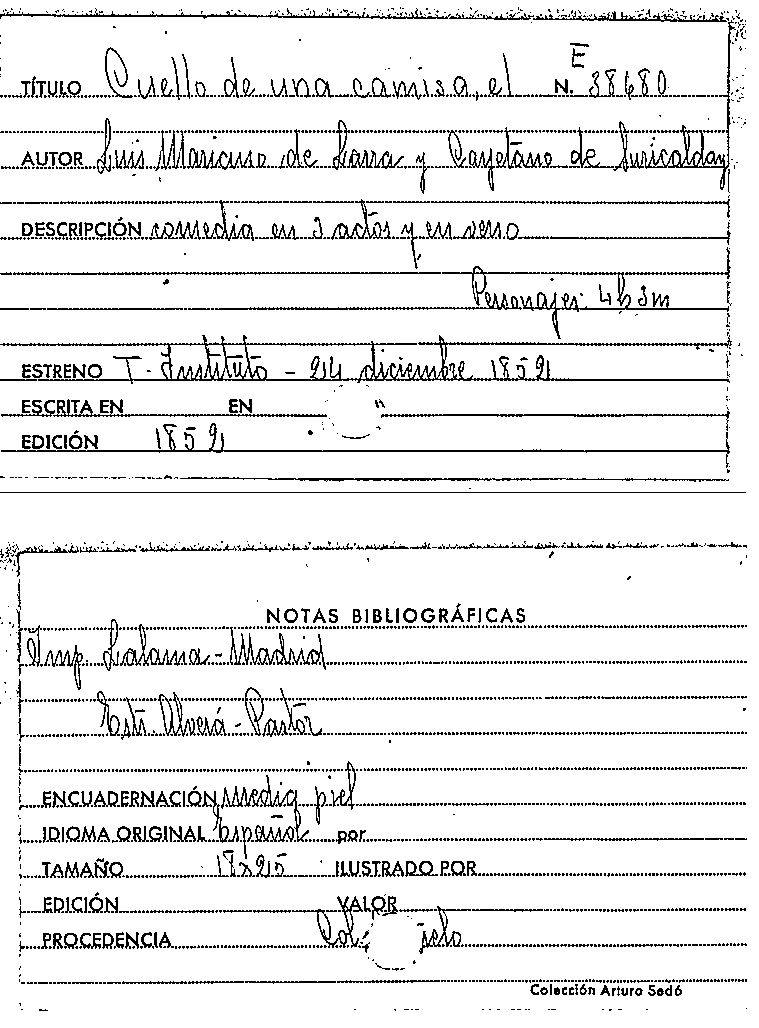 E
TÍTULO Cuello de una camisa, el N. 38680
AUTOR Luis Mariano de Larra y Cayetano de Suricalday
DESCRIPCIÓN comedia en 3 actos y en verso
Personajes: 4h 3m
ESTRENO T. Instituto - 24 diciembre 1852
ESCRITA EN EN "
EDICIÓN 1852
NOTAS BIBLIOGRÁFICAS
Imp. Lalama - Madrid
Estr. Alverá - Pastor
ENCUADERNACIÓN media piel
IDIOMA ORIGINAL Español por
TAMAÑO 18x25 ILUSTRADO POR
EDICIÓN VALOR
PROCEDENCIA Col.
Colección Arturo Sedó